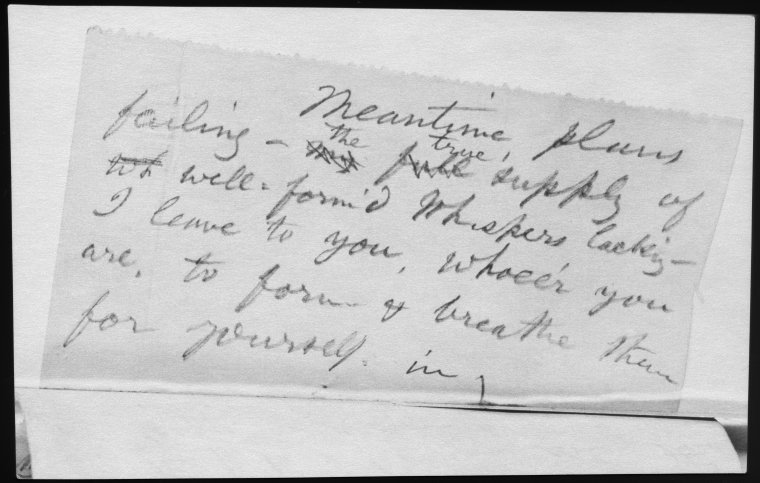 Meantime, plans
failing – the true supply of
well-form'd Whispers lacking –
I leave to you, whoe'er you
are, to form & breathe them
for yourself. in